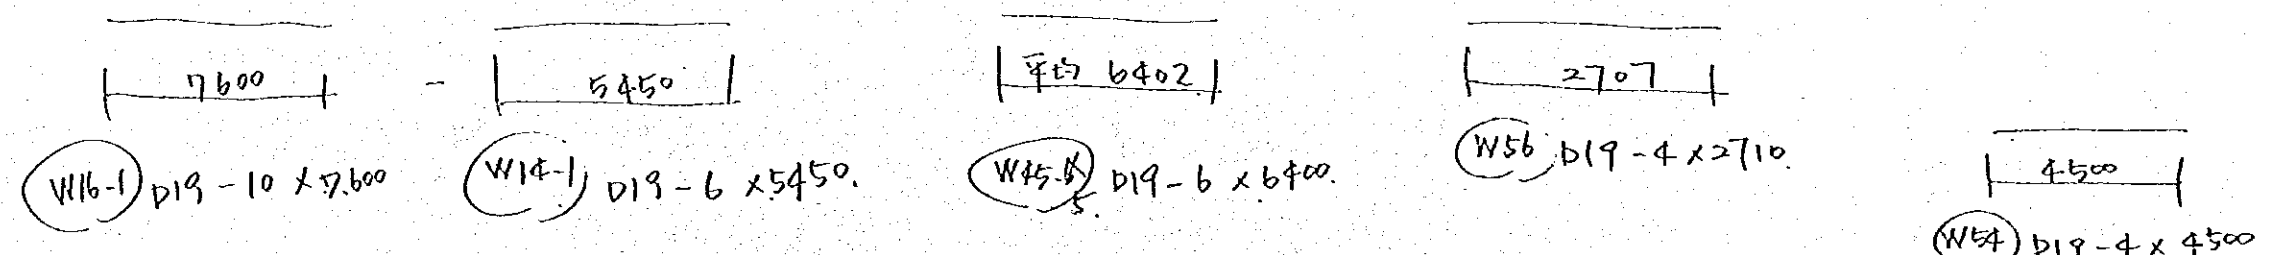 7600
W16-1 D19-10×7.600
5450
W14-1 D19-6×5450.
平均 6402
W45-5. D19-6×6400.
2707
W56 D19-4×2710.
4500
W54 D19-4×4500